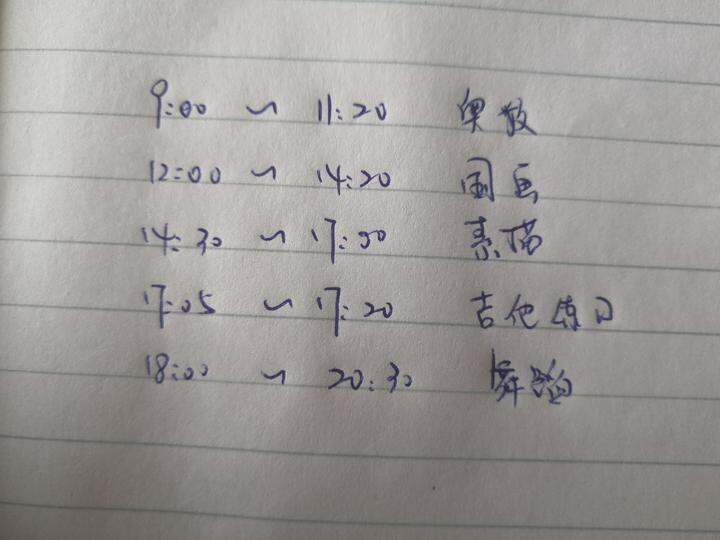 9:00 ~ 11:20 奥数
12:00 ~ 14:20 国画
14:30 ~ 17:00 素描
17:05 ~ 17:20 吉他练习
18:00 ~ 20:30 舞蹈